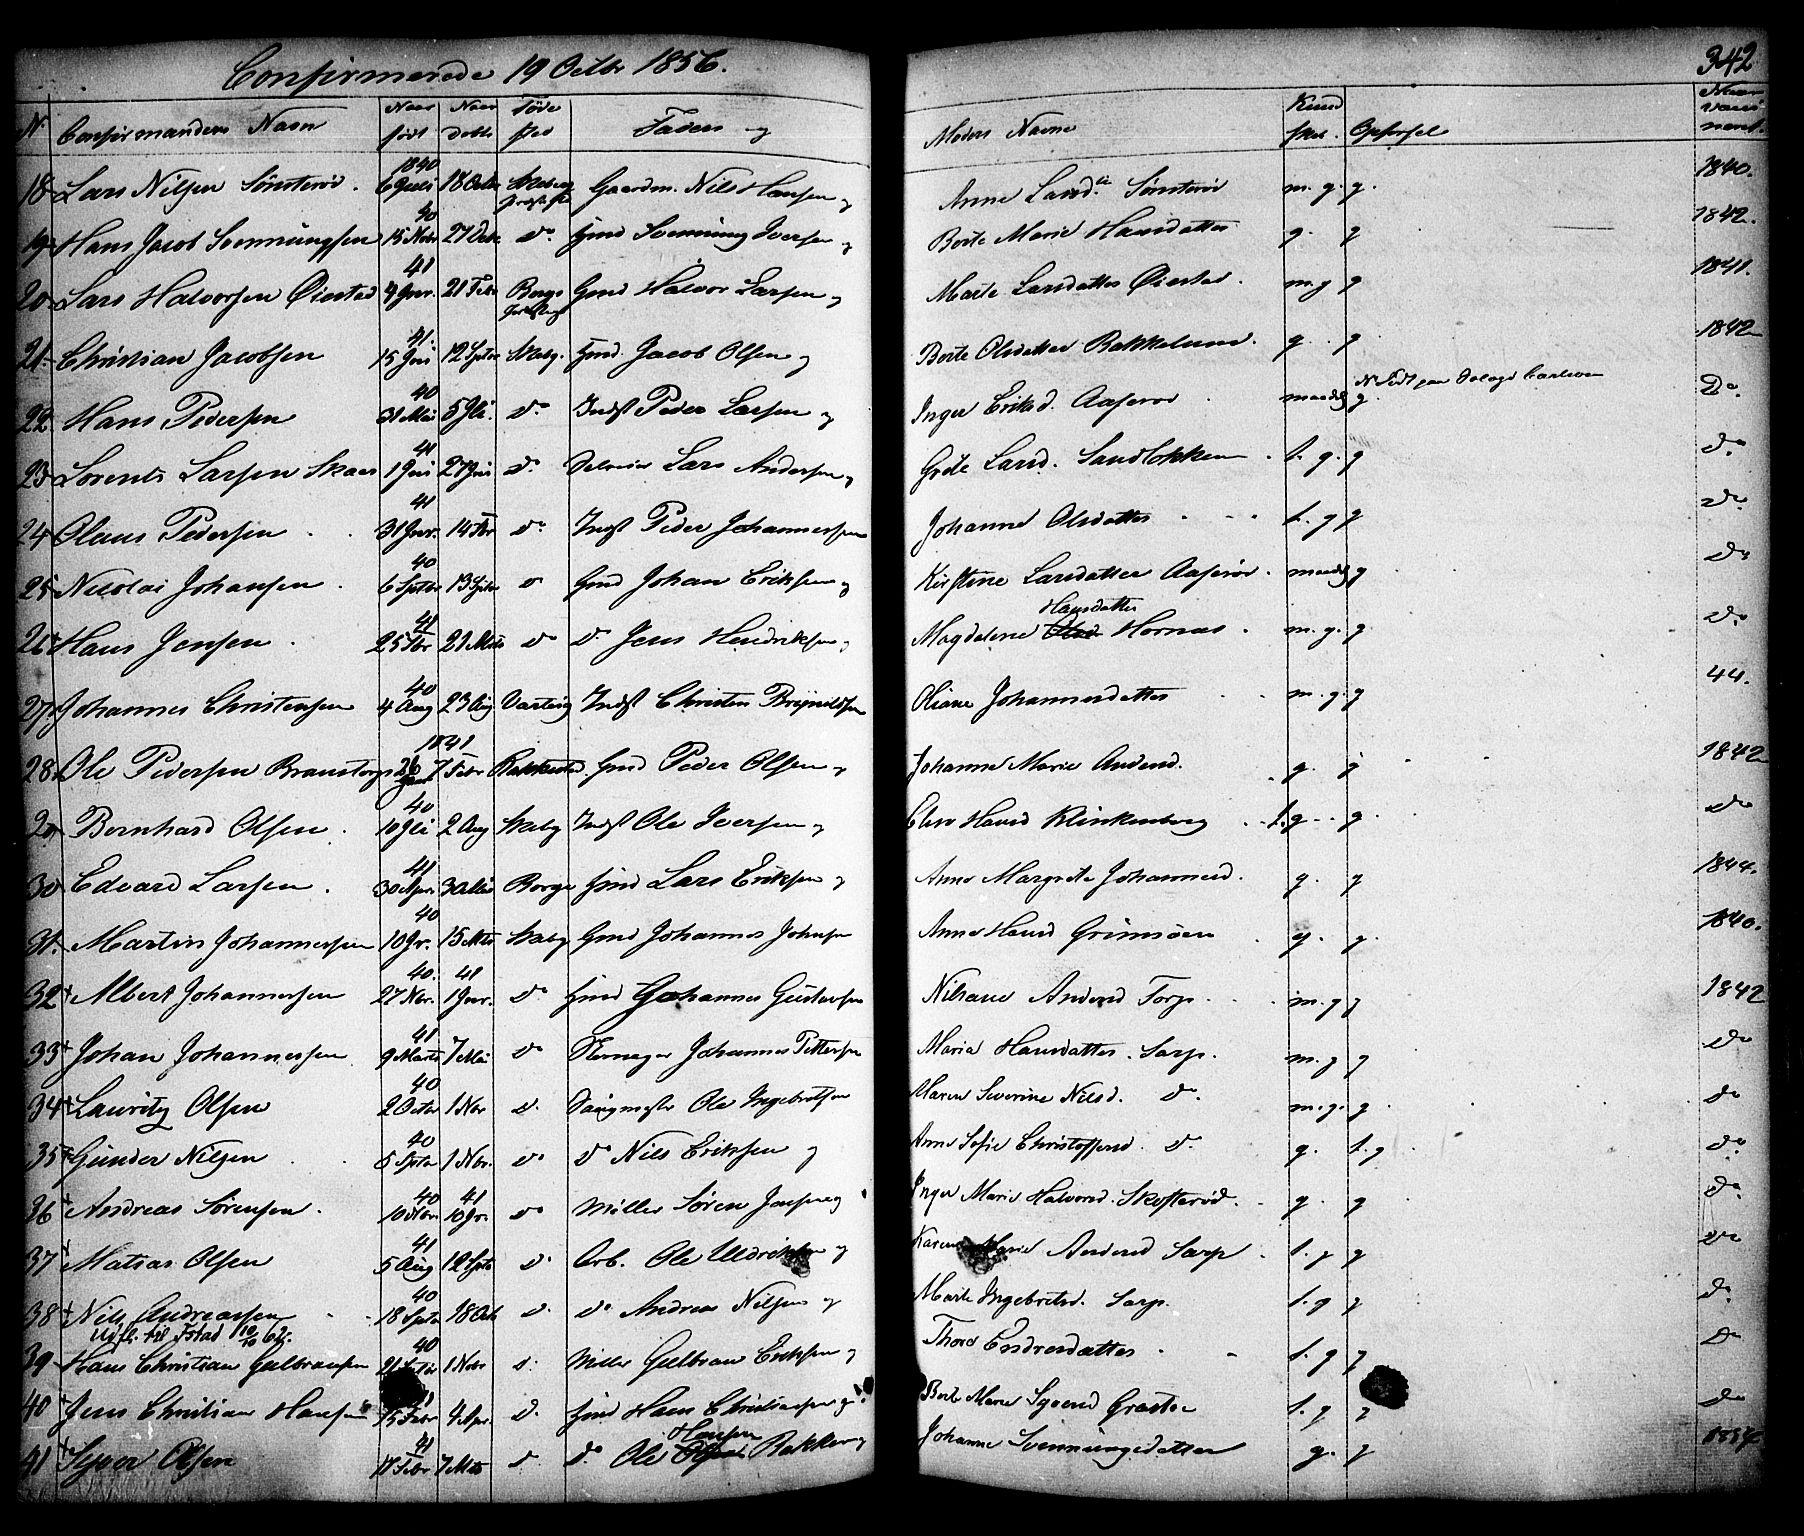 Confirmerede 19 Octbr 1856.
342
N. Confirmandens Navn Naar født Naar Døbt Føde sted Faders og Moders Navne Kund skab. Opførsel Naar vaccineret.
18 Lars Nilsen Sønsterød. 1840 6 Juli 18 Octbr Gaardm. Nils Hansen og Anne Larsd. Sønsterød m. g. g. 1840.
19 Hans Jacob Svenningsen 40 15 Nvbr 27 Dcbr do. Hmd Svenning Iversen og Berte Marie Hansdatter g. g 1842.
20 Lars Halvorsen Øiestad 41 9 Jnvr. 21 Febr Borge Gmd Halvor Larsen og Marte Larsdatter Øiestad. m. g g 1841.
21 Christian Jacobsen 41. 15 Juni 12 Sptbr Skeby. Hmd. Jacob Olsen og Berte Olsdatter Bakkelund. g. g 1842
22 Hans Pedersen 40 31 Mai 5 Jli. do Indst Peder Larsen og Inger Eriksd. Aaserød maadelg g. Do.
23 Lorents Larsen Skaar 41 1 Juni 27 Juni do. Lars Andersen og Grete Larsd. Sandløkken t. g. g do.
24 Olaus Pedersen 41 31 Jnvr. 14 Fbr do Indst Peder Johannessen Johanne Olsdatter t. g g do
25 Nicolai Johansen 40 6 Sptbr 13 Sptbr do Gmd Johan Eriksen og Kirstine Larsdatter Aaserød. maadelg g do
26 Hans Jensen 41 25 Fbr 21 Mts do do Jens Hendriksen og Magdalene Olsd Hansdatter Hornæs m. g. g do.
27 Johannes Christensen 40 4 Aug 23 Aug Varteig Indst Christen Brynildsen Oliane Johannesdatter m. g. g 44.
28 Ole Pedersen Brandstorp 1841 26 Janr 7 Febr Rakkestad. Gmd Peder Olsen og Johanne Marie Andersd. g. g 1842
29 Bernhard Olsen 40 10 Jli 2 Aug Skeby Indst Ole Iversen og Elise Hansd Klinkenberg t. g g. do
30 Edvard Larsen. 41 30 Apr. 30 Mai Borge Hmd Lars Eriksen og Anne Margrete Johannesd. g. g 1844.
31. Martin Johannessen 40 10 Jr. 15 Mts Skeby Gmd Johannes Johnsen Anne Hansd Grimsøen g. g. 1840.
32 Albert Johannessen 40. 27 Nov. 41 1 Jnvr. do Hmd Johannes Gustavsen Nilsane Andersd Torp m. g g 1842
33 Johan Johannessen 41 9 Marts 7 Mai do Johannes Pettersen Maria Hansdatter. Sarp. m. g g do
34 Lauritz Olsen 40 2 Octbr 1 Nov do. Saugmester Ole Ingebretsen Maren Severine Nilsd. do. m. g. g do
35 Gunder Nilsen 40 5 Sptbr 1 Nbr. do do Nils Eriksen og Anne Sofie Christoffersd. do. g. t. g do
36 Andreas Sørensen. 40 10 Nbr. 41 10 Jr. do Møller Søren Jensen og Inger Marie Halvorsd. Skofterød. g. g do.
37 Matias Olsen 41 5 Aug 12 Sptb do Arb. Ole Uldriksen og Karen Marie Andersd Sarp t. g g do
38 Nils Andreassen 40 18 Sptbr 18 Octb do. do Andreas Nilsen og Marte Ingebretsd. Sarp. t. g g do.
Udfl. til Idstad 10/10 62.
39 Hans Christian Gulbransen 40 21 Sptbr 1 Nobr do. Møller Gulbran Eriksen og Thore Endresdatter t. g g do
40 Jens Christian Hansen 41 15 Febr 4 Apr. do. Hmd Hans Christiansen og Berte Marie Syversd Græsloe t. g g do
41 Syver Olsen 41 11 Febr 7 Mts do do Ole Olsen Hansen Bakken og Johanne Svenningsdatter g. g